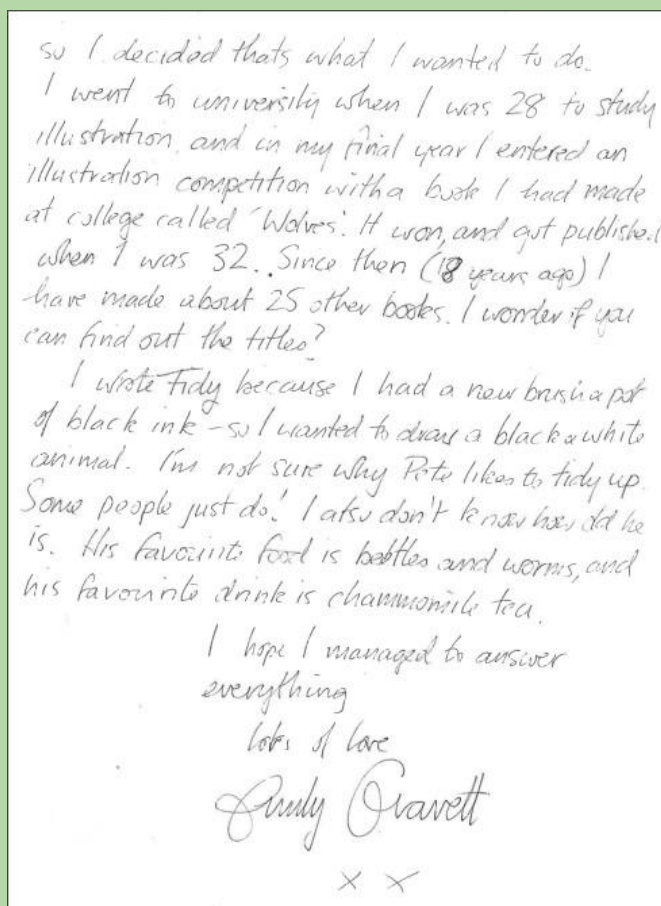 so I decided thats what I wanted to do.
I went to university when I was 28 to study
illustration, and in my final year I entered an
illustration competition with a book I had made
at college called 'Wolves'. It won, and got published
when I was 32. Since then (18 years ago) I
have made about 25 other books. I wonder if you
can find out the titles?
I wrote Tidy because I had a new brush & pot
of black ink - so I wanted to draw a black & white
animal. I'm not sure why Pete likes to tidy up.
Some people just do! I also don't know how old he
is. His favourite food is beetles and worms, and
his favourite drink is chammomile tea.
I hope I managed to answer
everything
lots of love
Emily Gravett
x x